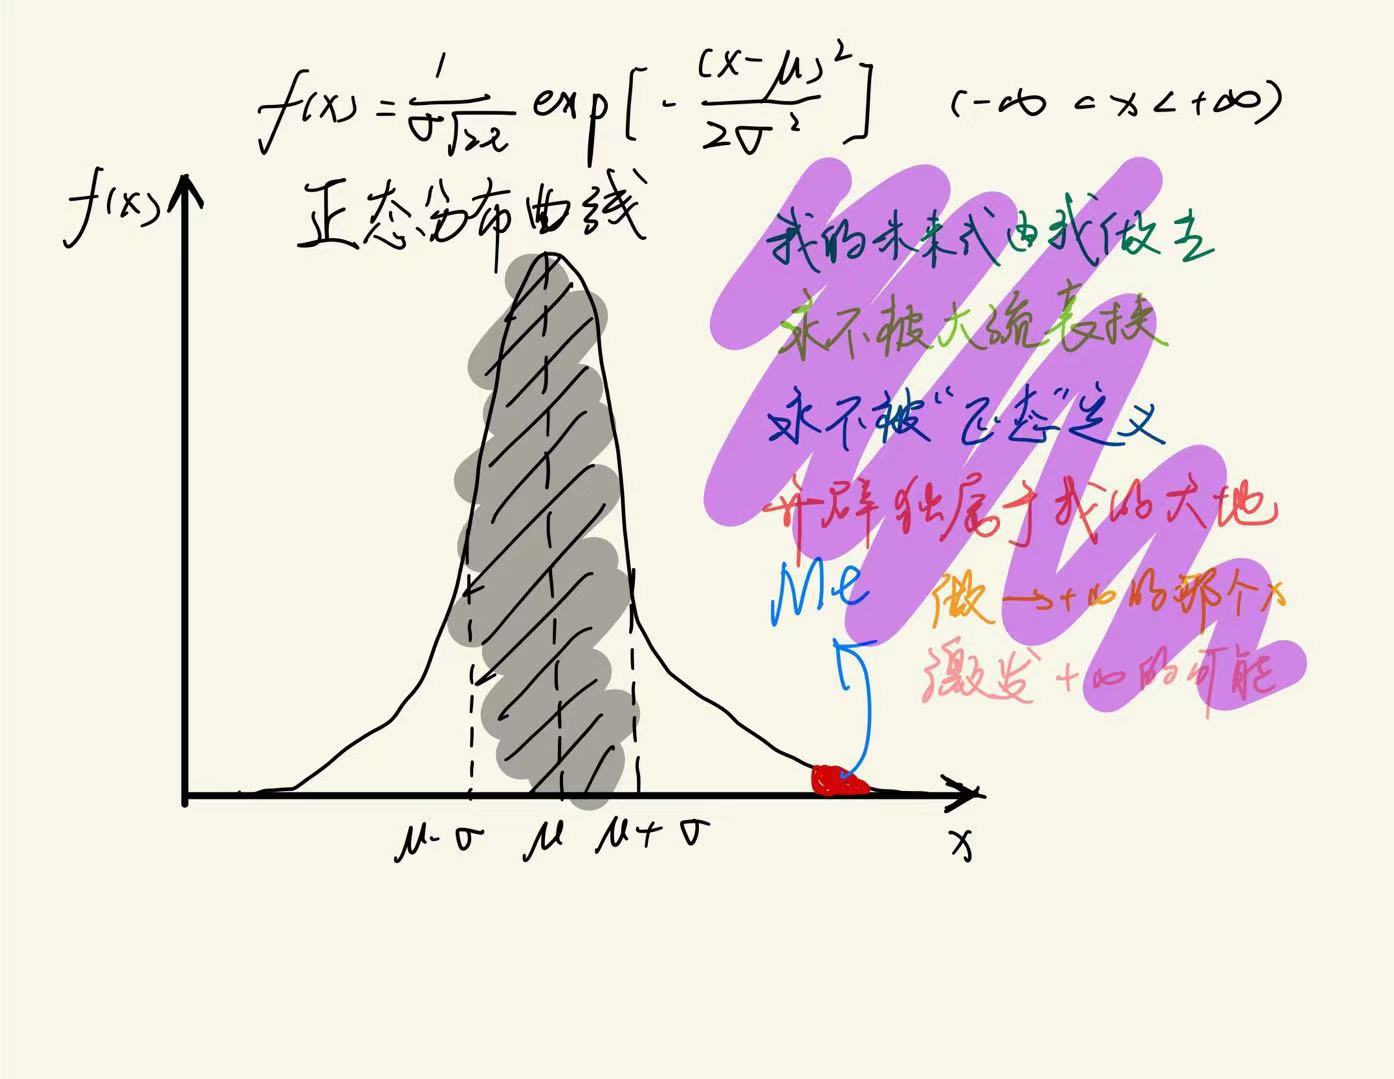 f(x) = 1/(σ√2π) exp[-(x-μ)²/2σ²] (-∞ < x < +∞)
f(x)
正态分布曲线
我的未来式由我做主
永不被大流裹挟
永不被“正态”定义
开辟独属于我的天地
Me
做→+∞的那个x
激发+∞的可能
μ-σ μ μ+σ
x